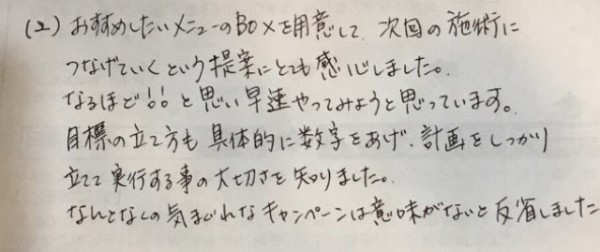 (2) おすすめしたいメニューのBOXを用意して、次回の施術に
つなげていくという提案にとても感心しました。
なるほど!!と思い早速やってみようと思っています。
目標の立て方も具体的に数字をあげ、計画をしっかり
立てて実行する事の大切さを知りました。
なんとなくの気まぐれなキャンペーンは意味がないと反省しました